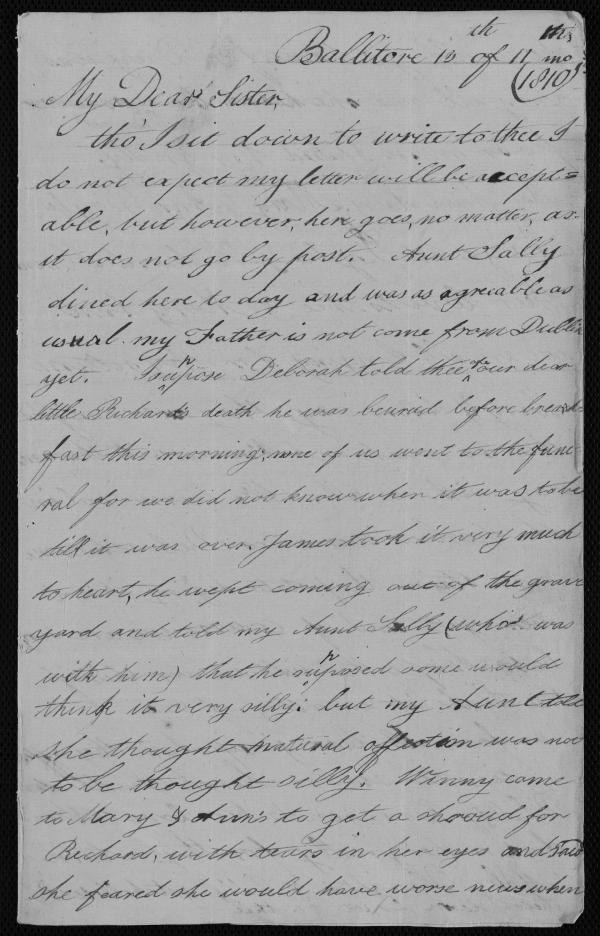 Ballitore 13th of 11 mo
(1810)
My Dear Sister,
tho' I sit down to write to thee I
do not expect my letter will be accept=
able, but however, here goes, no matter, as
it does not go by post. Aunt Sally
dined here to day and was as agreeable as
usual. my Father is not come from Dublin
yet. I suppose Deborah told thee of our dear
little Richard's death he was beuried before break
fast this morning, none of us went to the fune
ral for we did not know when it was to be
till it was over. James took it very much
to heart, he wept coming out of the grave
yard and told my Aunt Sally (who was
with him) that he supposed some would
think it very silly: but my Aunt told
she thought natural affection was not
to be thought silly. Winny came
to Mary & Ann's to get a shroud for
Richard, with tears in her eyes and said
she feared she would have worse news when